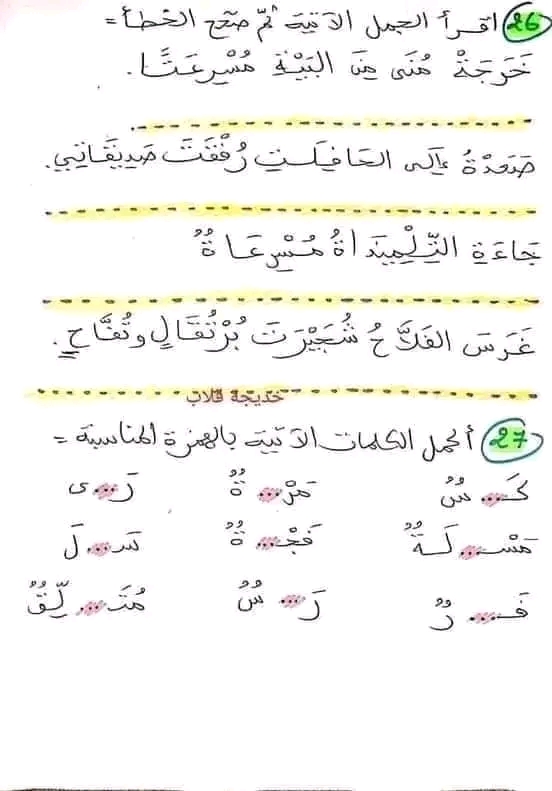 26 اقرأ الجمل الآتية ثمّ صحّح الخطأ =
خَرَجَةْ مُنَى مِنَ البَيْةِ مُسْرِعَتًا.
صَعِدْةُ إِلى الحَافِلَتِ رُفْقَتَ صَدِيقَاتِي.
جَاءَةِ التِّلْمِيذَاةُ مُسْرِعَاةٌ
غَرَسَ الفَلاَّحُ شُجَيْرَتَ بُرْتُقَالٍ وتُفَّاحٍ.
خديجة قلاب
27 أكمل الكلمات الآتية بالهمزة المناسبة =
كَـ... سٌ مَرْ... ةٌ رَ...ى
مَسْـ... لَةٌ فَجْـ... ةٌ سَـ... لَ
فَـ... رٌ رَ... سٌ مُتَـ... لِّقٌ